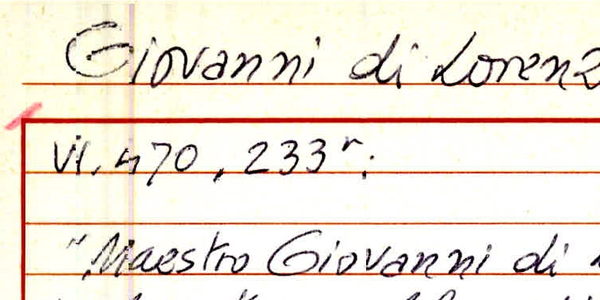 Giovanni di Lorenz
VI. 470, 233r:
"Maestro Giovanni di